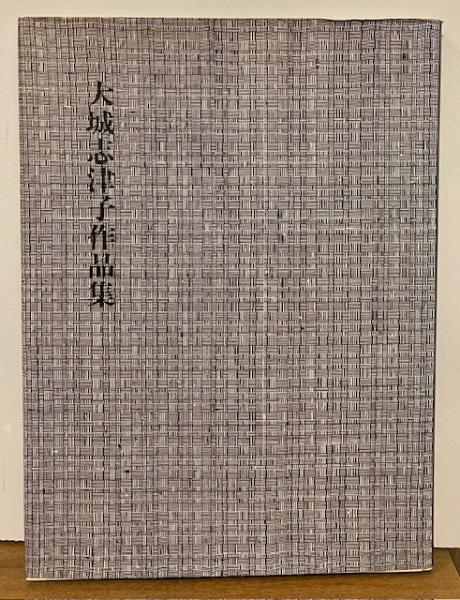 大城志津子作品集